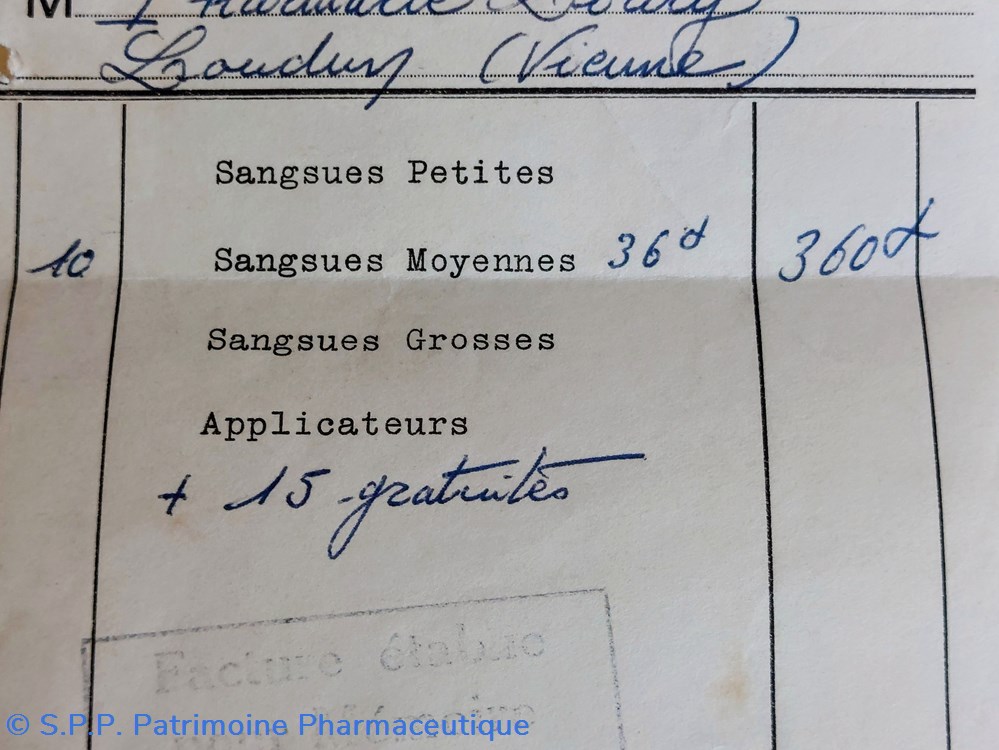 M Pharmacie
Loudun (Vienne)
Sangsues Petites
10 Sangsues Moyennes 36 360
Sangsues Grosses
Applicateurs
+ 15 gratuités
Facture établie
Mémoire
© S.P.P. Patrimoine Pharmaceutique